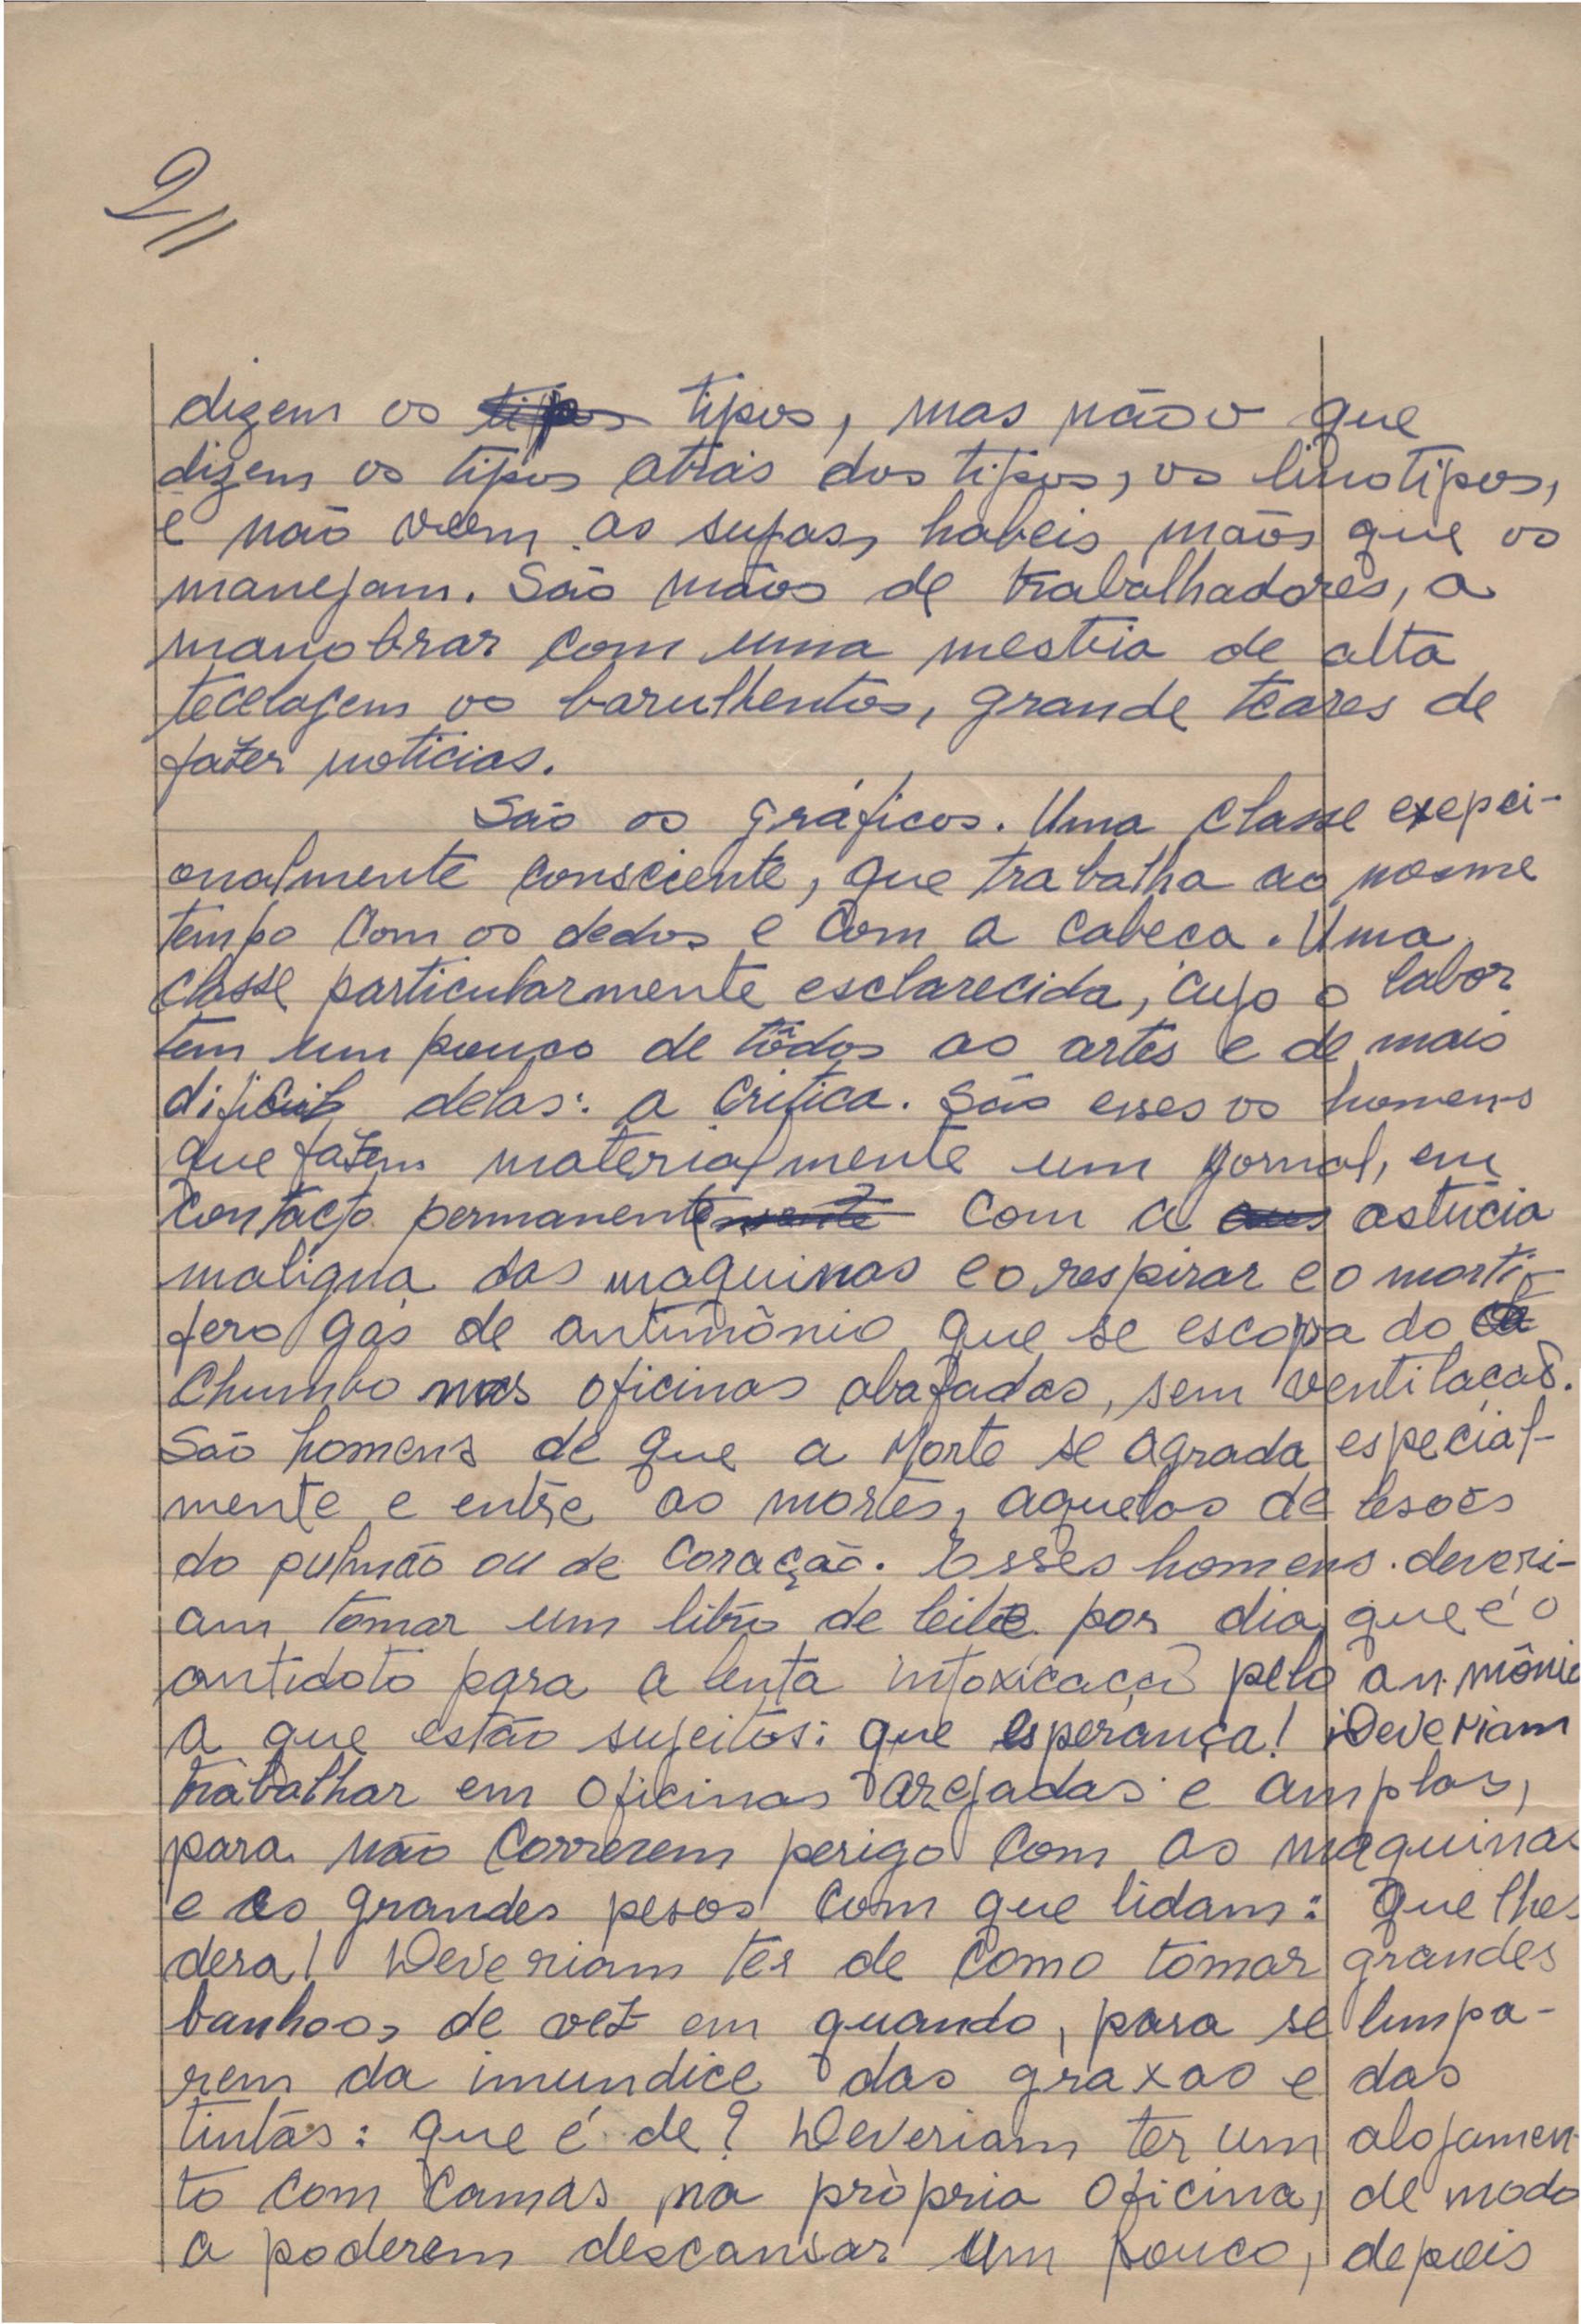 2//
dizem os tipos tipos, mas não o que
dizem os tipos atrás dos tipos, os linotipos,
e não vêem as sujas, habeis mãos que os
manejam. São mãos de trabalhadores, a
manobrar com uma mestria de alta
tecelagem os barulhentos, grande teares de
fazer noticias.
São os gráficos. Uma classe exepci-
onalmente consciente, que trabalha ao mesme
tempo com os dedos e com a cabeca. Uma
classe particularmente esclarecida, cujo o labor
tem um pouco de tôdas as artes e de mais
dificil delas: a critica. São esses os homens
que fazem materialmente um jornal, em
contacto permanentemente com a astúcia
maligna das maquinas e o respirar e o mortí-
fero gás de antimônio que se escapa do
chumbo nas oficinas abafadas, sem ventilacaõ.
São homens de que a Morte se agrada especial-
mente e entre as mortes, aquelas de lesoẽs
do pulmão ou de coração. Esses homens deveri-
am tomar um litro de leite por dia, que é o
antidoto para a lenta intoxicaçã pelo an.mônio
a que estão sujeitos: que esperança! Deveriam
trabalhar em oficinas arejadas e amplas,
para não correrem perigo com as maquinas
e os grandes pesos com que lidam: que lhes
dera! Deveriam ter de como tomar grandes
banhos, de vez em quando, para se limpa-
rem da imundice das graxas e das
tintas: que é de? Deveriam ter um alojamen-
to com camas na própria oficina, de modo
a poderem descansar um pouco, depois